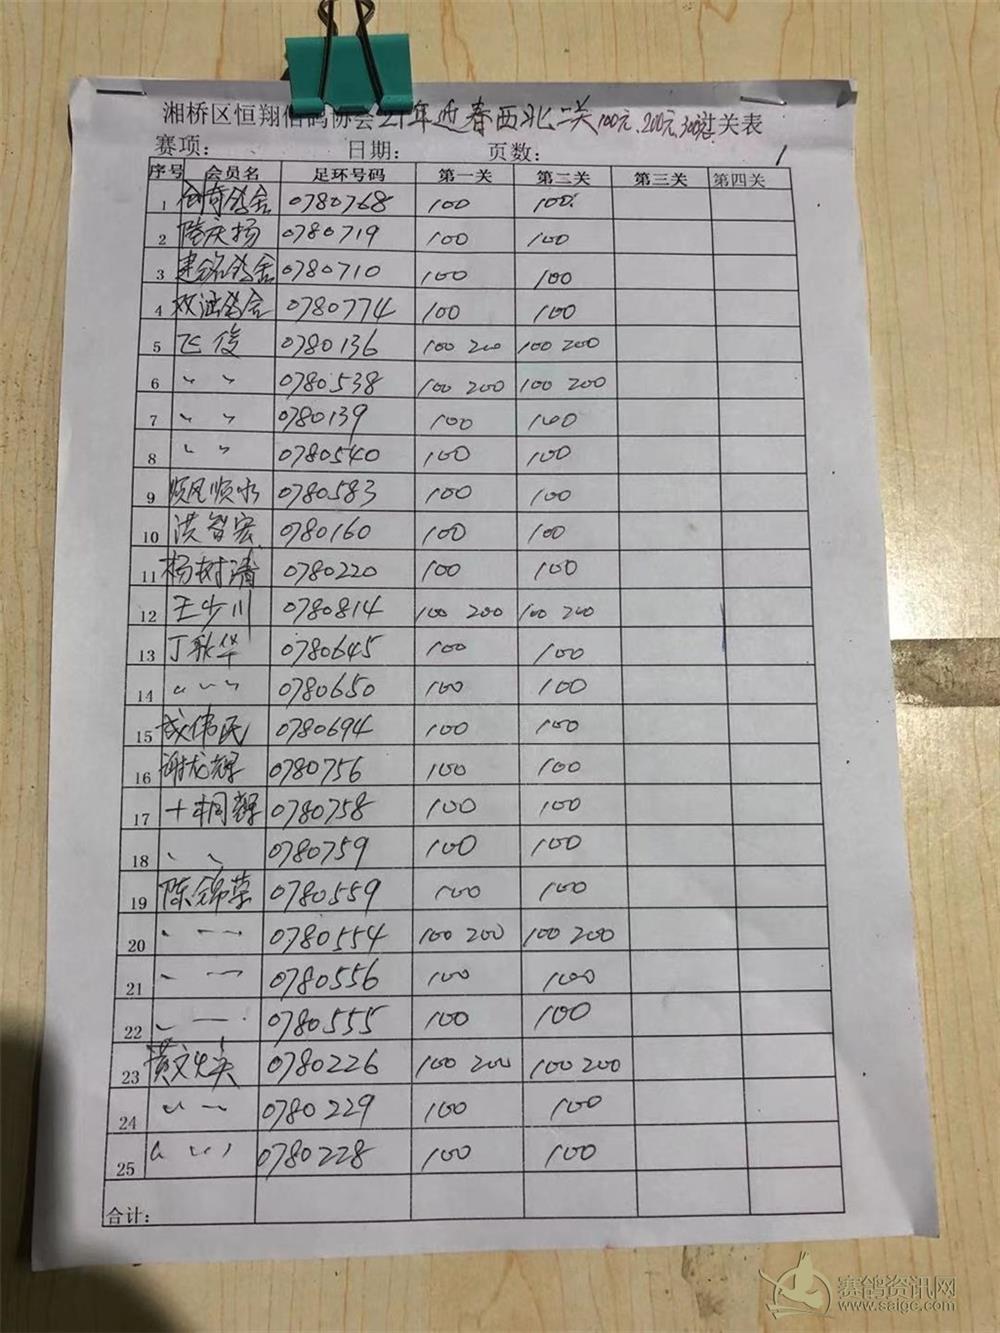 湘桥区恒翔信鸽协会21年迎春西北二关100元、200元、300元过关表
赛项： 日期： 页数： 1
序号 会员名 足环号码 第一关 第二关 第三关 第四关
1 鸽舍 0780768 100 100
2 陈庆扬 0780719 100 100
3 建铭鸽舍 0780710 100 100
4 双涵鸽舍 0780774 100 100
5 飞俊 0780136 100 200 100 200
6 〃 〃 0780538 100 200 100 200
7 〃 〃 0780139 100 100
8 〃 〃 0780540 100 100
9 顺风顺水 0780583 100 100
10 洪智宏 0780160 100 100
11 杨树清 0780220 100 100
12 王少川 0780814 100 200 100 200
13 丁耿华 0780645 100 100
14 〃 〃 〃 0780650 100 100
15 成伟民 0780694 100 100
16 谢龙辉 0780756 100 100
17 十辉 0780758 100 100
18 〃 〃 0780759 100 100
19 陈锦荣 0780559 100 100
20 〃 〃 0780554 100 200 100 200
21 〃 〃 0780556 100 100
22 〃 〃 0780555 100 100
23 黄文光 0780226 100 200 100 200
24 〃 〃 0780229 100 100
25 〃 〃 〃 0780228 100 100
合计：
赛鸽资讯网
www.saigc.com